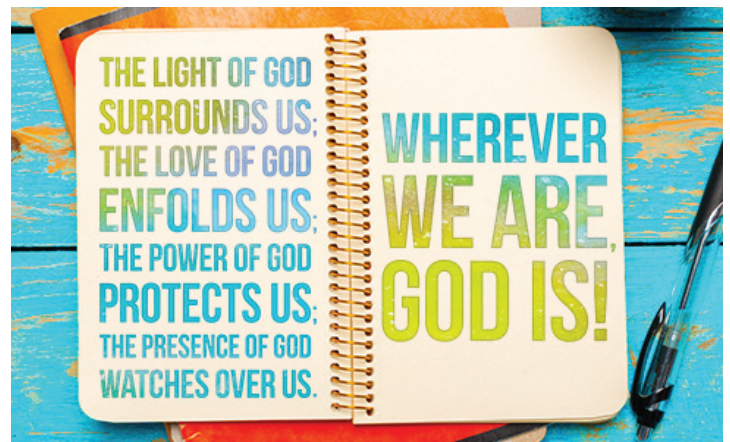 THE LIGHT OF GOD
SURROUNDS US;
THE LOVE OF GOD
ENFOLDS US;
THE POWER OF GOD
PROTECTS US;
THE PRESENCE OF GOD
WATCHES OVER US.
WHEREVER
WE ARE,
GOD IS!